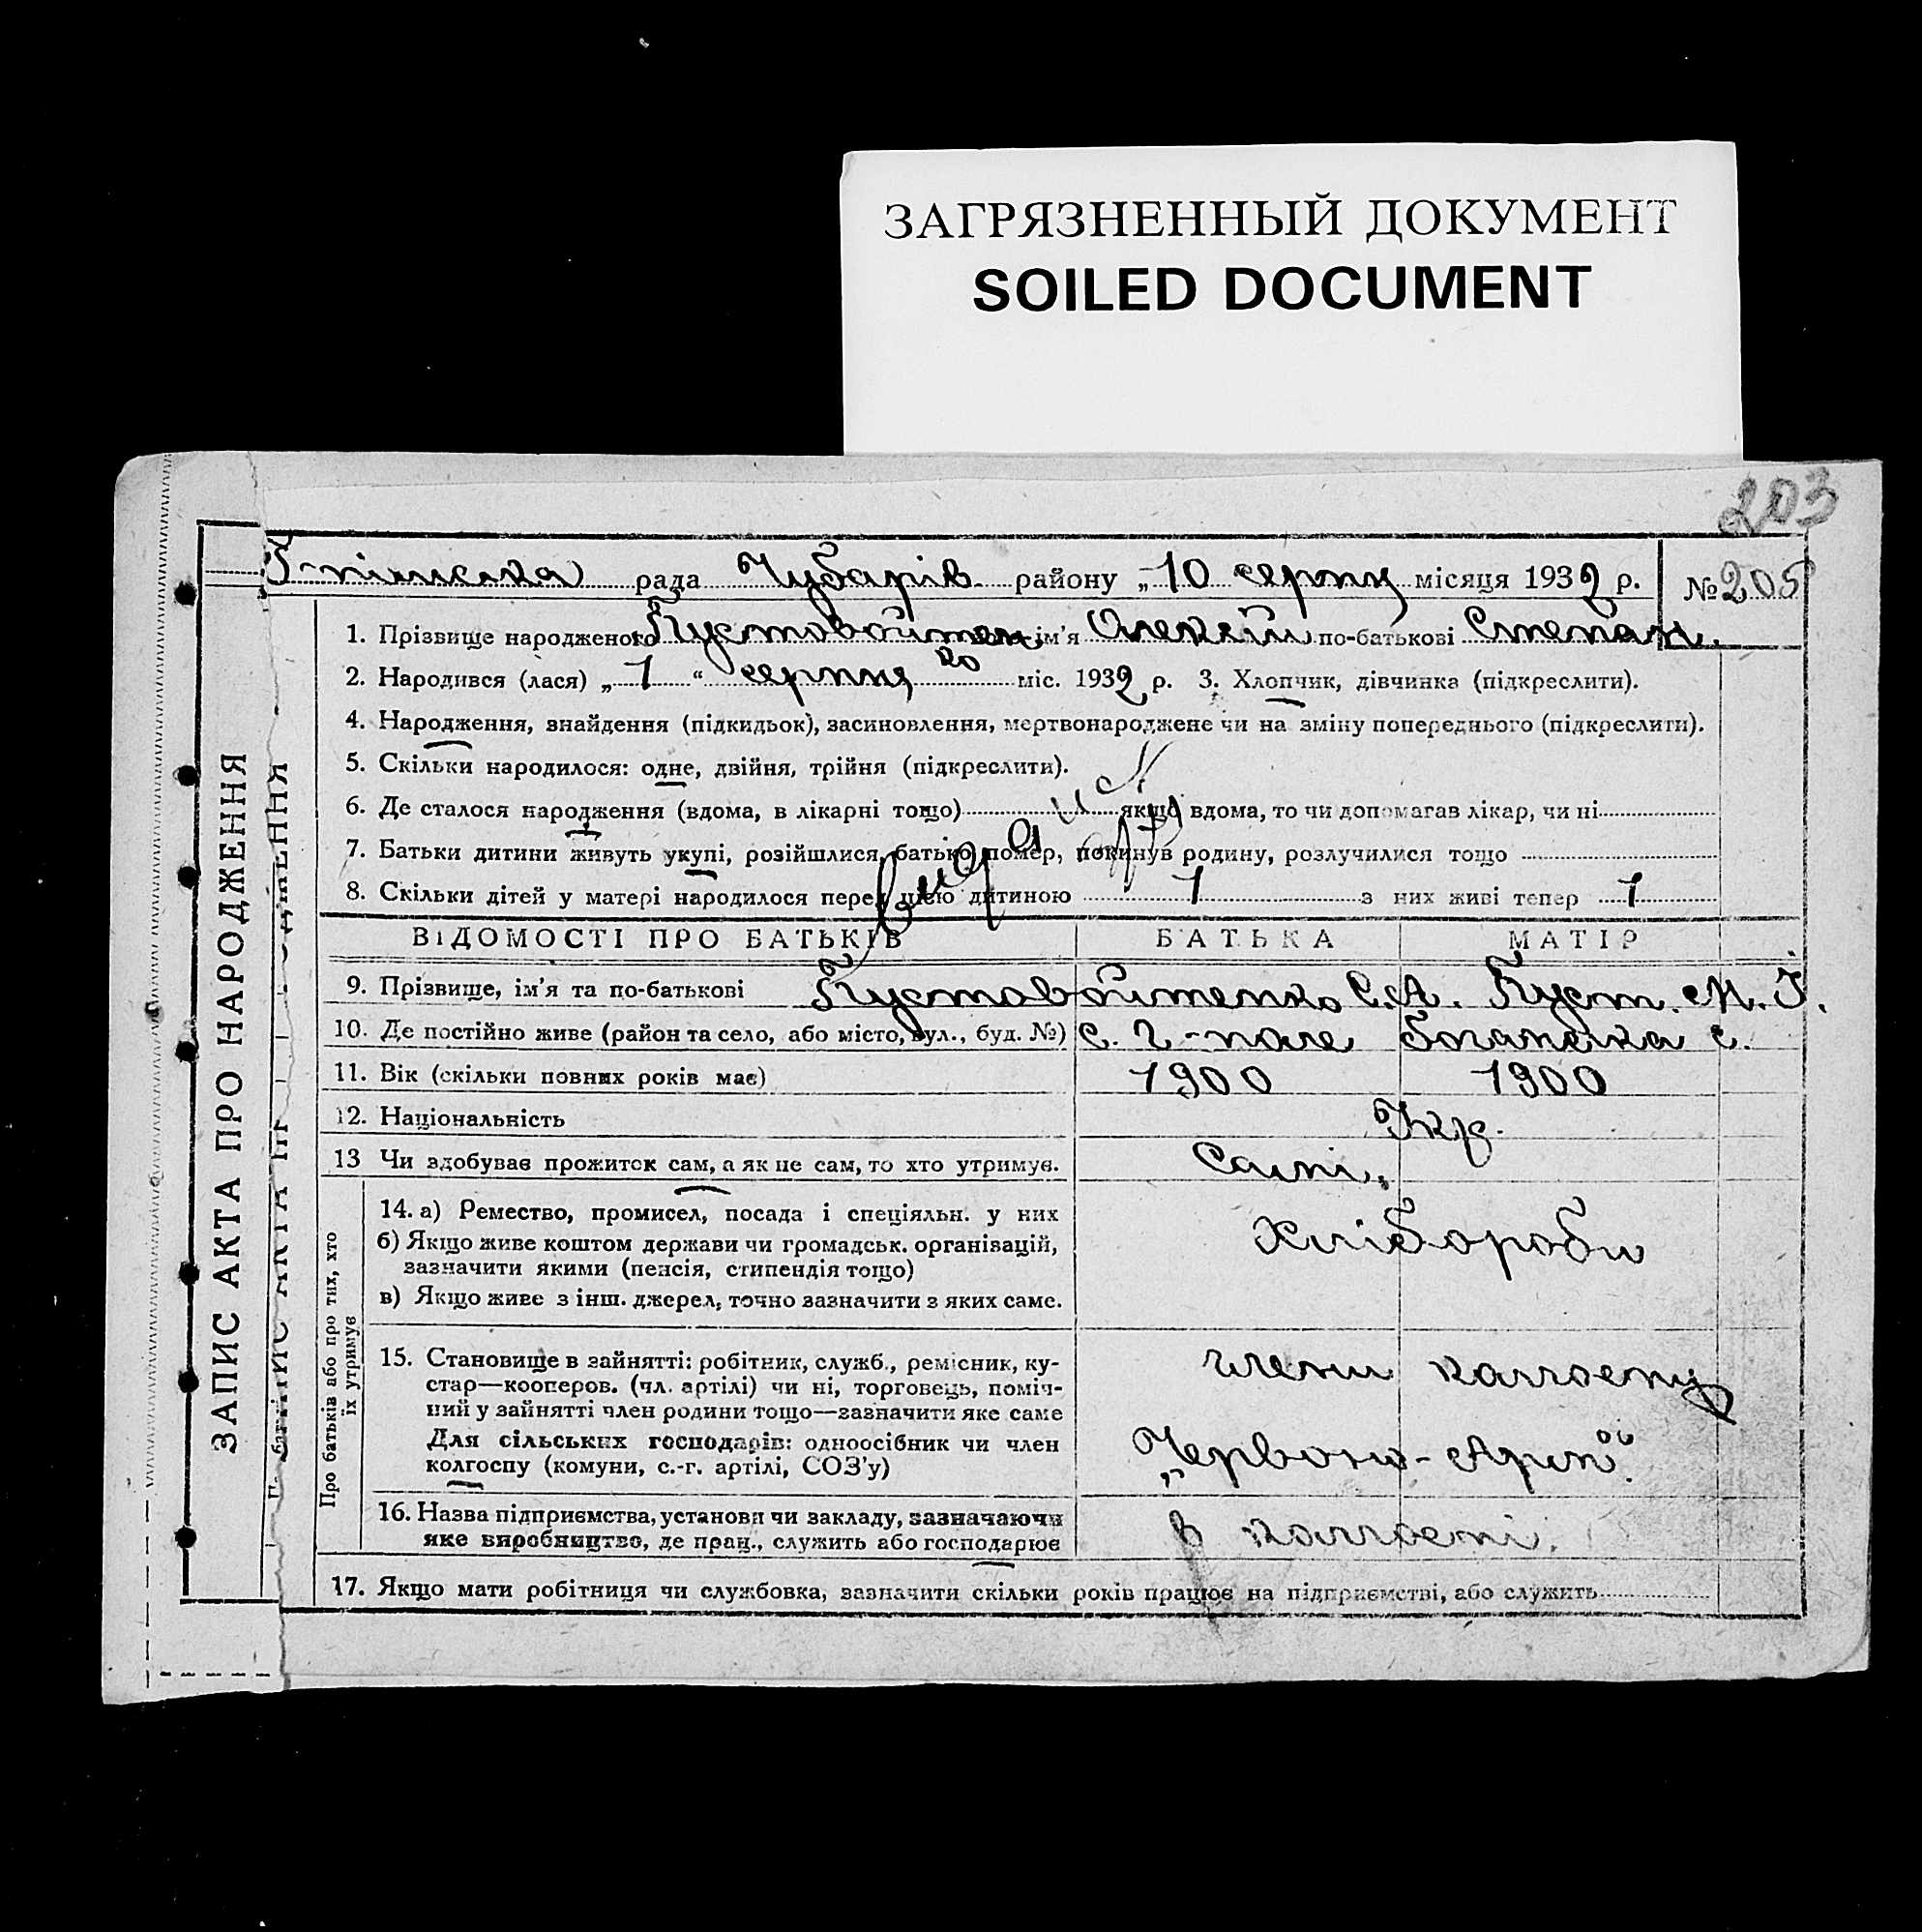 ЗАГРЯЗНЕННЫЙ ДОКУМЕНТ
SOILED DOCUMENT
203
рада Чубарів району „10 серпня місяця 1932 р. № 205
1. Прізвище народженого Пустовойтенко ім'я Олексій по-батькові Степан.
2. Народився (лася) „ 1 “ серпня міс. 1932 р. 3. Хлопчик, дівчинка (підкреслити).
4. Народження, знайдення (підкидьок), засиновлення, мертвонароджене чи на зміну попереднього (підкреслити).
5. Скільки народилося: одне, двійня, трійня (підкреслити).
6. Де сталося народження (вдома, в лікарні тощо) якщо вдома, то чи допомагав лікар, чи ні
7. Батьки дитини живуть укупі, розійшлися, батько помер, покинув родину, розлучилися тощо
8. Скільки дітей у матері народилося перед цією дитиною 1 з них живі тепер 1
ВІДОМОСТІ ПРО БАТЬКІВ БАТЬКА МАТІР
9. Прізвище, ім'я та по-батькові Пустовойтенко С.А. Пуст. М. І.
10. Де постійно живе (район та село, або місто, вул., буд. №) с. Г-поле
11. Вік (скільки повних років має) 1900 1900
12. Національність Укр.
13 Чи здобуває прожиток сам, а як не сам, то хто утримує. Самі
Про батьків або про тих, хто
їх утримує
14. а) Ремество, промисел, посада і спеціяльн. у них Хлібороби
б) Якщо живе коштом держави чи громадськ. організацій,
зазначити якими (пенсія, стипендія тощо)
в) Якщо живе з інш. джерел, точно зазначити з яких саме.
15. Становище в зайнятті: робітник, служб., ремісник, ку-
стар—кооперов. (чл. артілі) чи ні, торговець, поміч-
ний у зайнятті член родини тощо—зазначити яке саме
члени колгоспу
Для сільських господарів: одноосібник чи член
колгоспу (комуни, с.-г. артілі, СОЗ'у)
16. Назва підприємства, установи чи закладу, зазначаючи
яке виробництво, де прац., служить або господарює
в колгоспі.
17. Якщо мати робітниця чи службовка, зазначити скільки років працює на підприємстві, або служить
ЗАПИС АКТА ПРО НАРОДЖЕННЯ